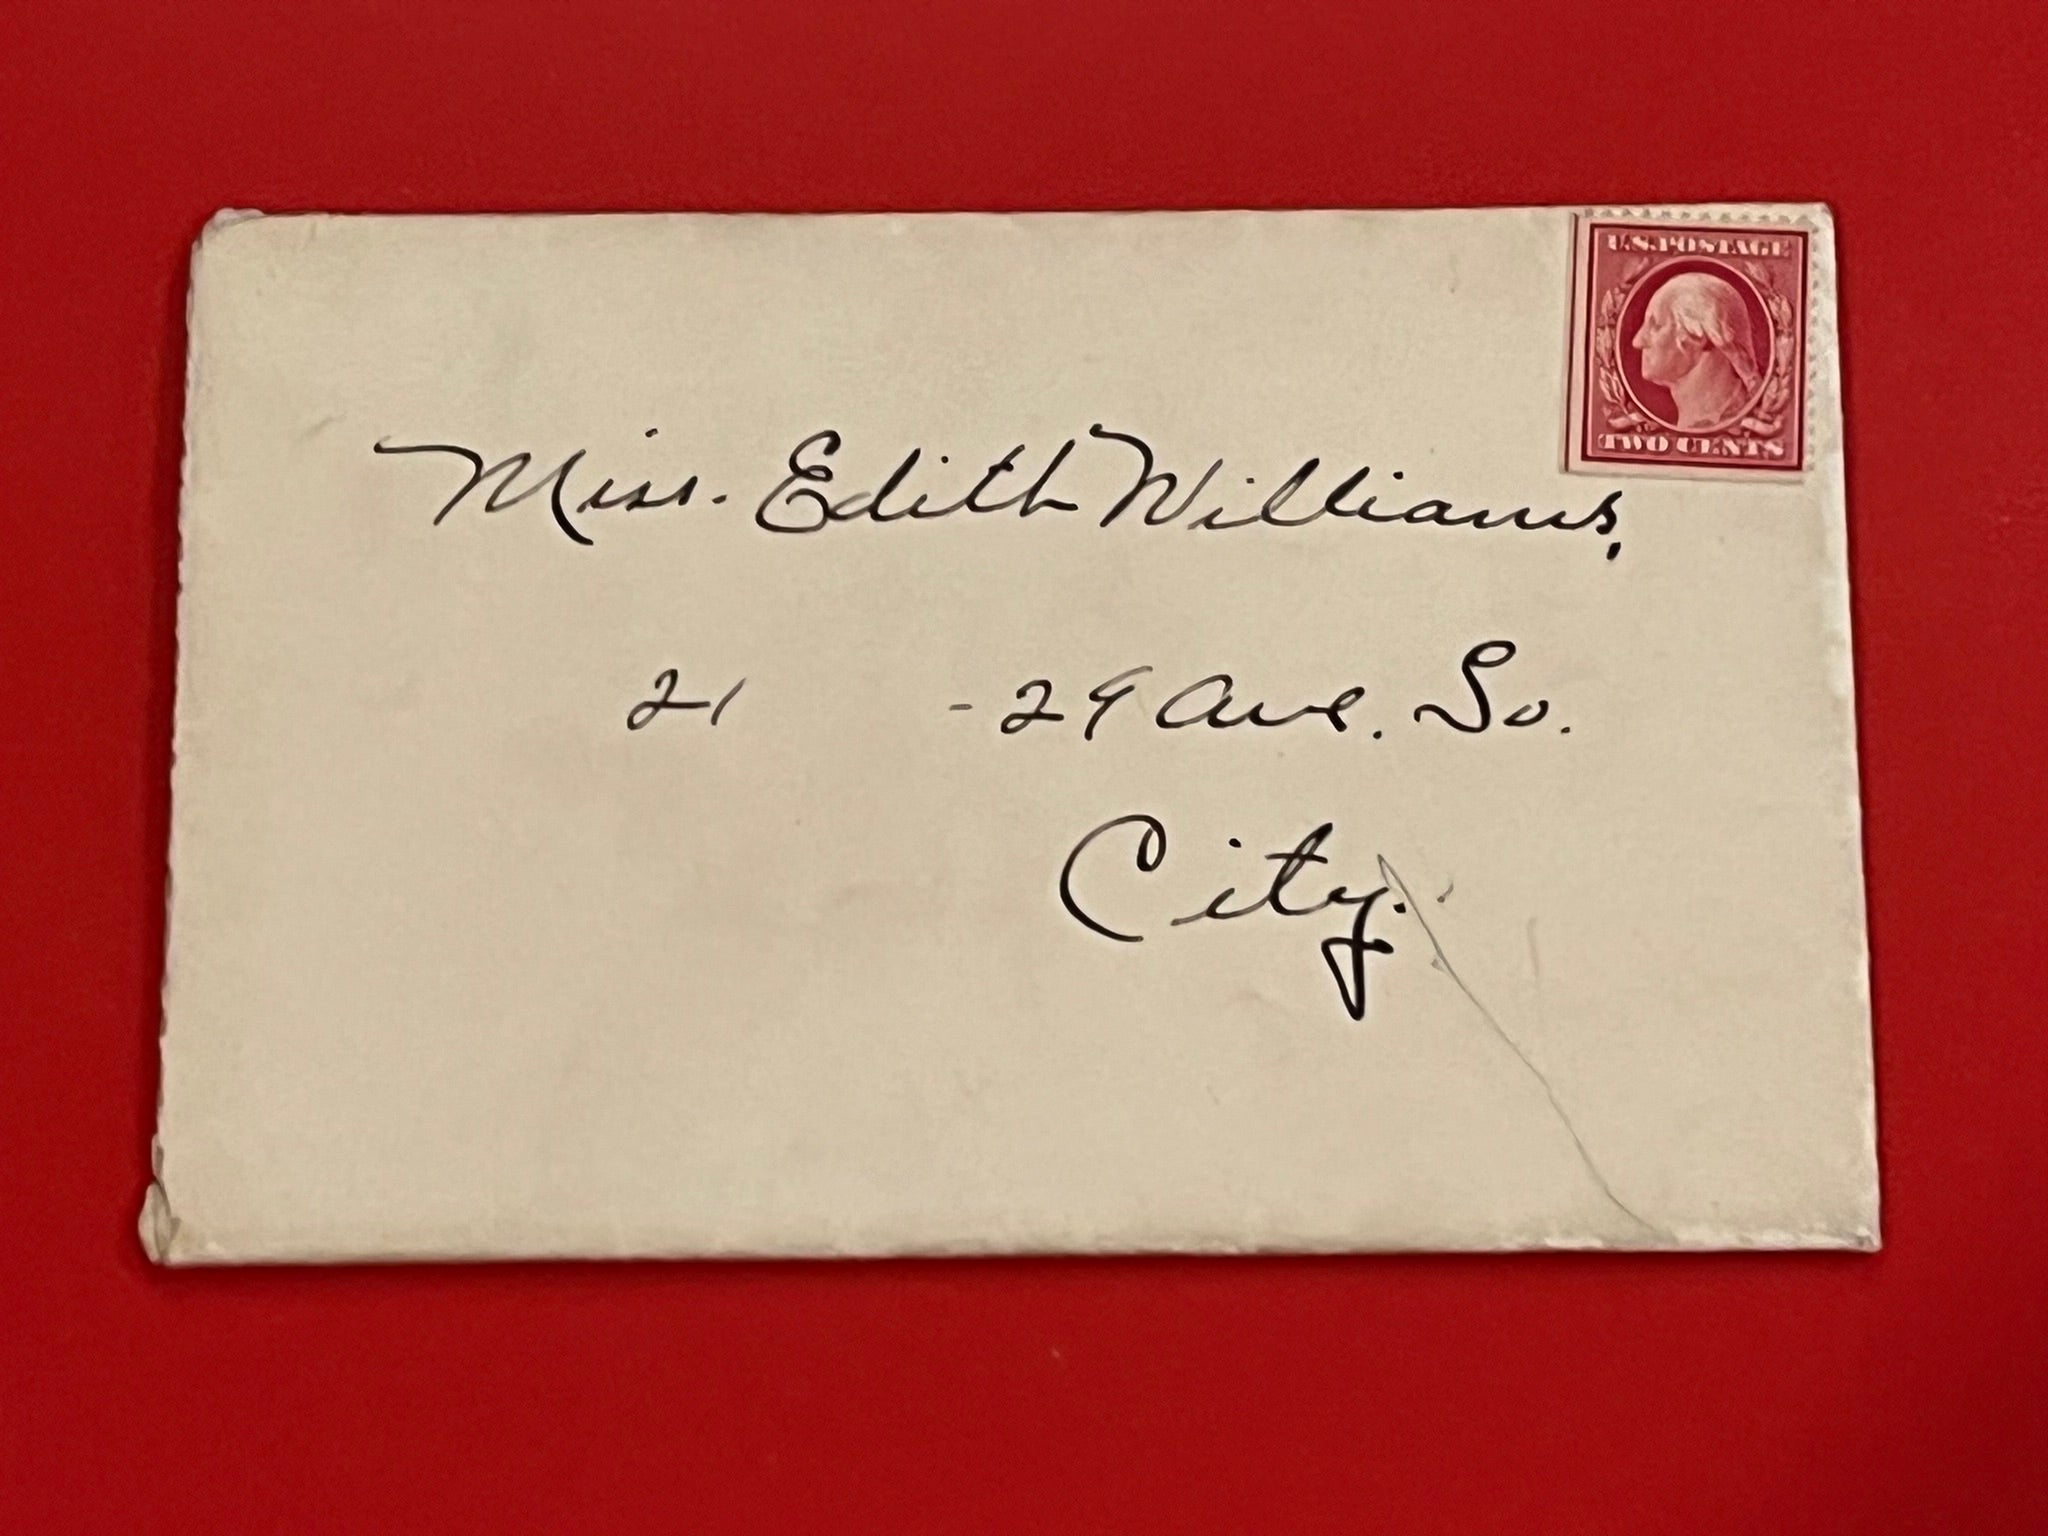 U.S. POSTAGE
TWO CENTS
Miss. Edith Williams,
21 - 29 Ave. So.
City.